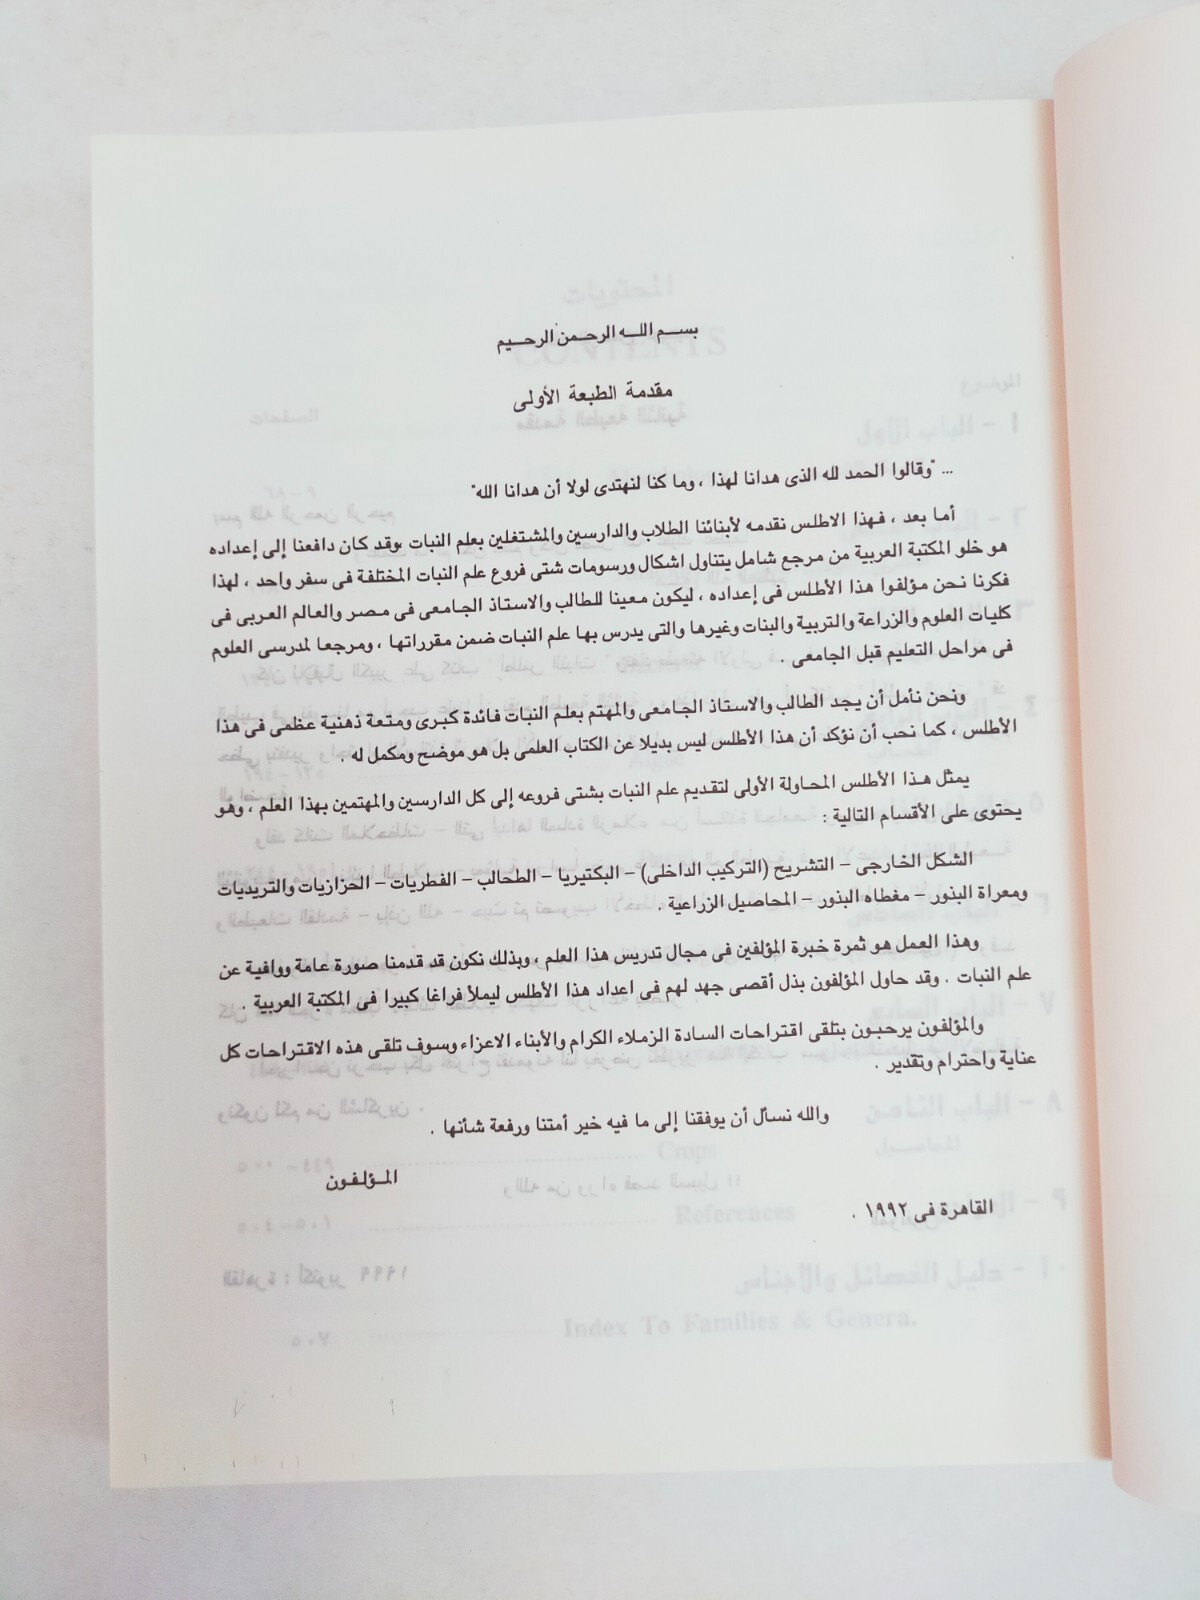 بســم اللــه الرحــمن الرحــيم
مقدمة الطبعة الأولى
... "وقالوا الحمد لله الذى هدانا لهذا ، وما كنا لنهتدى لولا أن هدانا الله"
أما بعد ، فـهذا الاطلس نقدمه لأبنائنا الطلاب والدارسين والمشتغلين بعلم النبات ،وقد كان دافعنا إلى إعداده
هو خلو المكتبة العربية من مرجع شامل يتناول اشكال ورسومات شتى فروع علم النبات المختلفة فى سفر واحد ، لهذا
فكرنا نحن مؤلفوا هذا الأطلس فى إعداده ، ليكون معينا للطالب والاستاذ الجامعى فى مصر والعالم العربى فى
كليات العلوم والزراعة والتربية والبنات وغيرها والتى يدرس بها علم النبات ضمن مقرراتها ، ومرجعا لمدرسى العلوم
فى مراحل التعليم قبل الجامعى .
ونحن نأمل أن يجد الطالب والاستاذ الجامعى والمهتم بعلم النبات فائدة كبرى ومتعة ذهنية عظمى فى هذا
الأطلس ، كما نحب أن نؤكد أن هذا الأطلس ليس بديلا عن الكتاب العلمى بل هو موضح ومكمل له .
يمثل هذا الأطلس المحاولة الأولى لتقديم علم النبات بشتى فروعه إلى كل الدارسين والمهتمين بهذا العلم ، وهو
يحتوى على الأقسام التالية :
الشكل الخارجى – التشريح (التركيب الداخلى) – البكتيريا – الطحالب – الفطريات – الحزازيات والتريديات
ومعراة البذور – مغطاه البذور – المحاصيل الزراعية .
وهذا العمل هو ثمرة خبرة المؤلفين فى مجال تدريس هذا العلم ، وبذلك نكون قد قدمنا صورة عامة ووافية عن
علم النبات . وقد حاول المؤلفون بذل أقصى جهد لهم فى اعداد هذا الأطلس ليملأ فراغا كبيرا فى المكتبة العربية .
والمؤلفون يرحبون بتلقى اقتراحات السادة الزملاء الكرام والأبناء الاعزاء وسوف تلقى هذه الاقتراحات كل
عناية واحترام وتقدير .
والله نسأل أن يوفقنا إلى ما فيه خير أمتنا ورفعة شأنها .
المـؤلـفـون
القاهرة فى ١٩٩٢ .